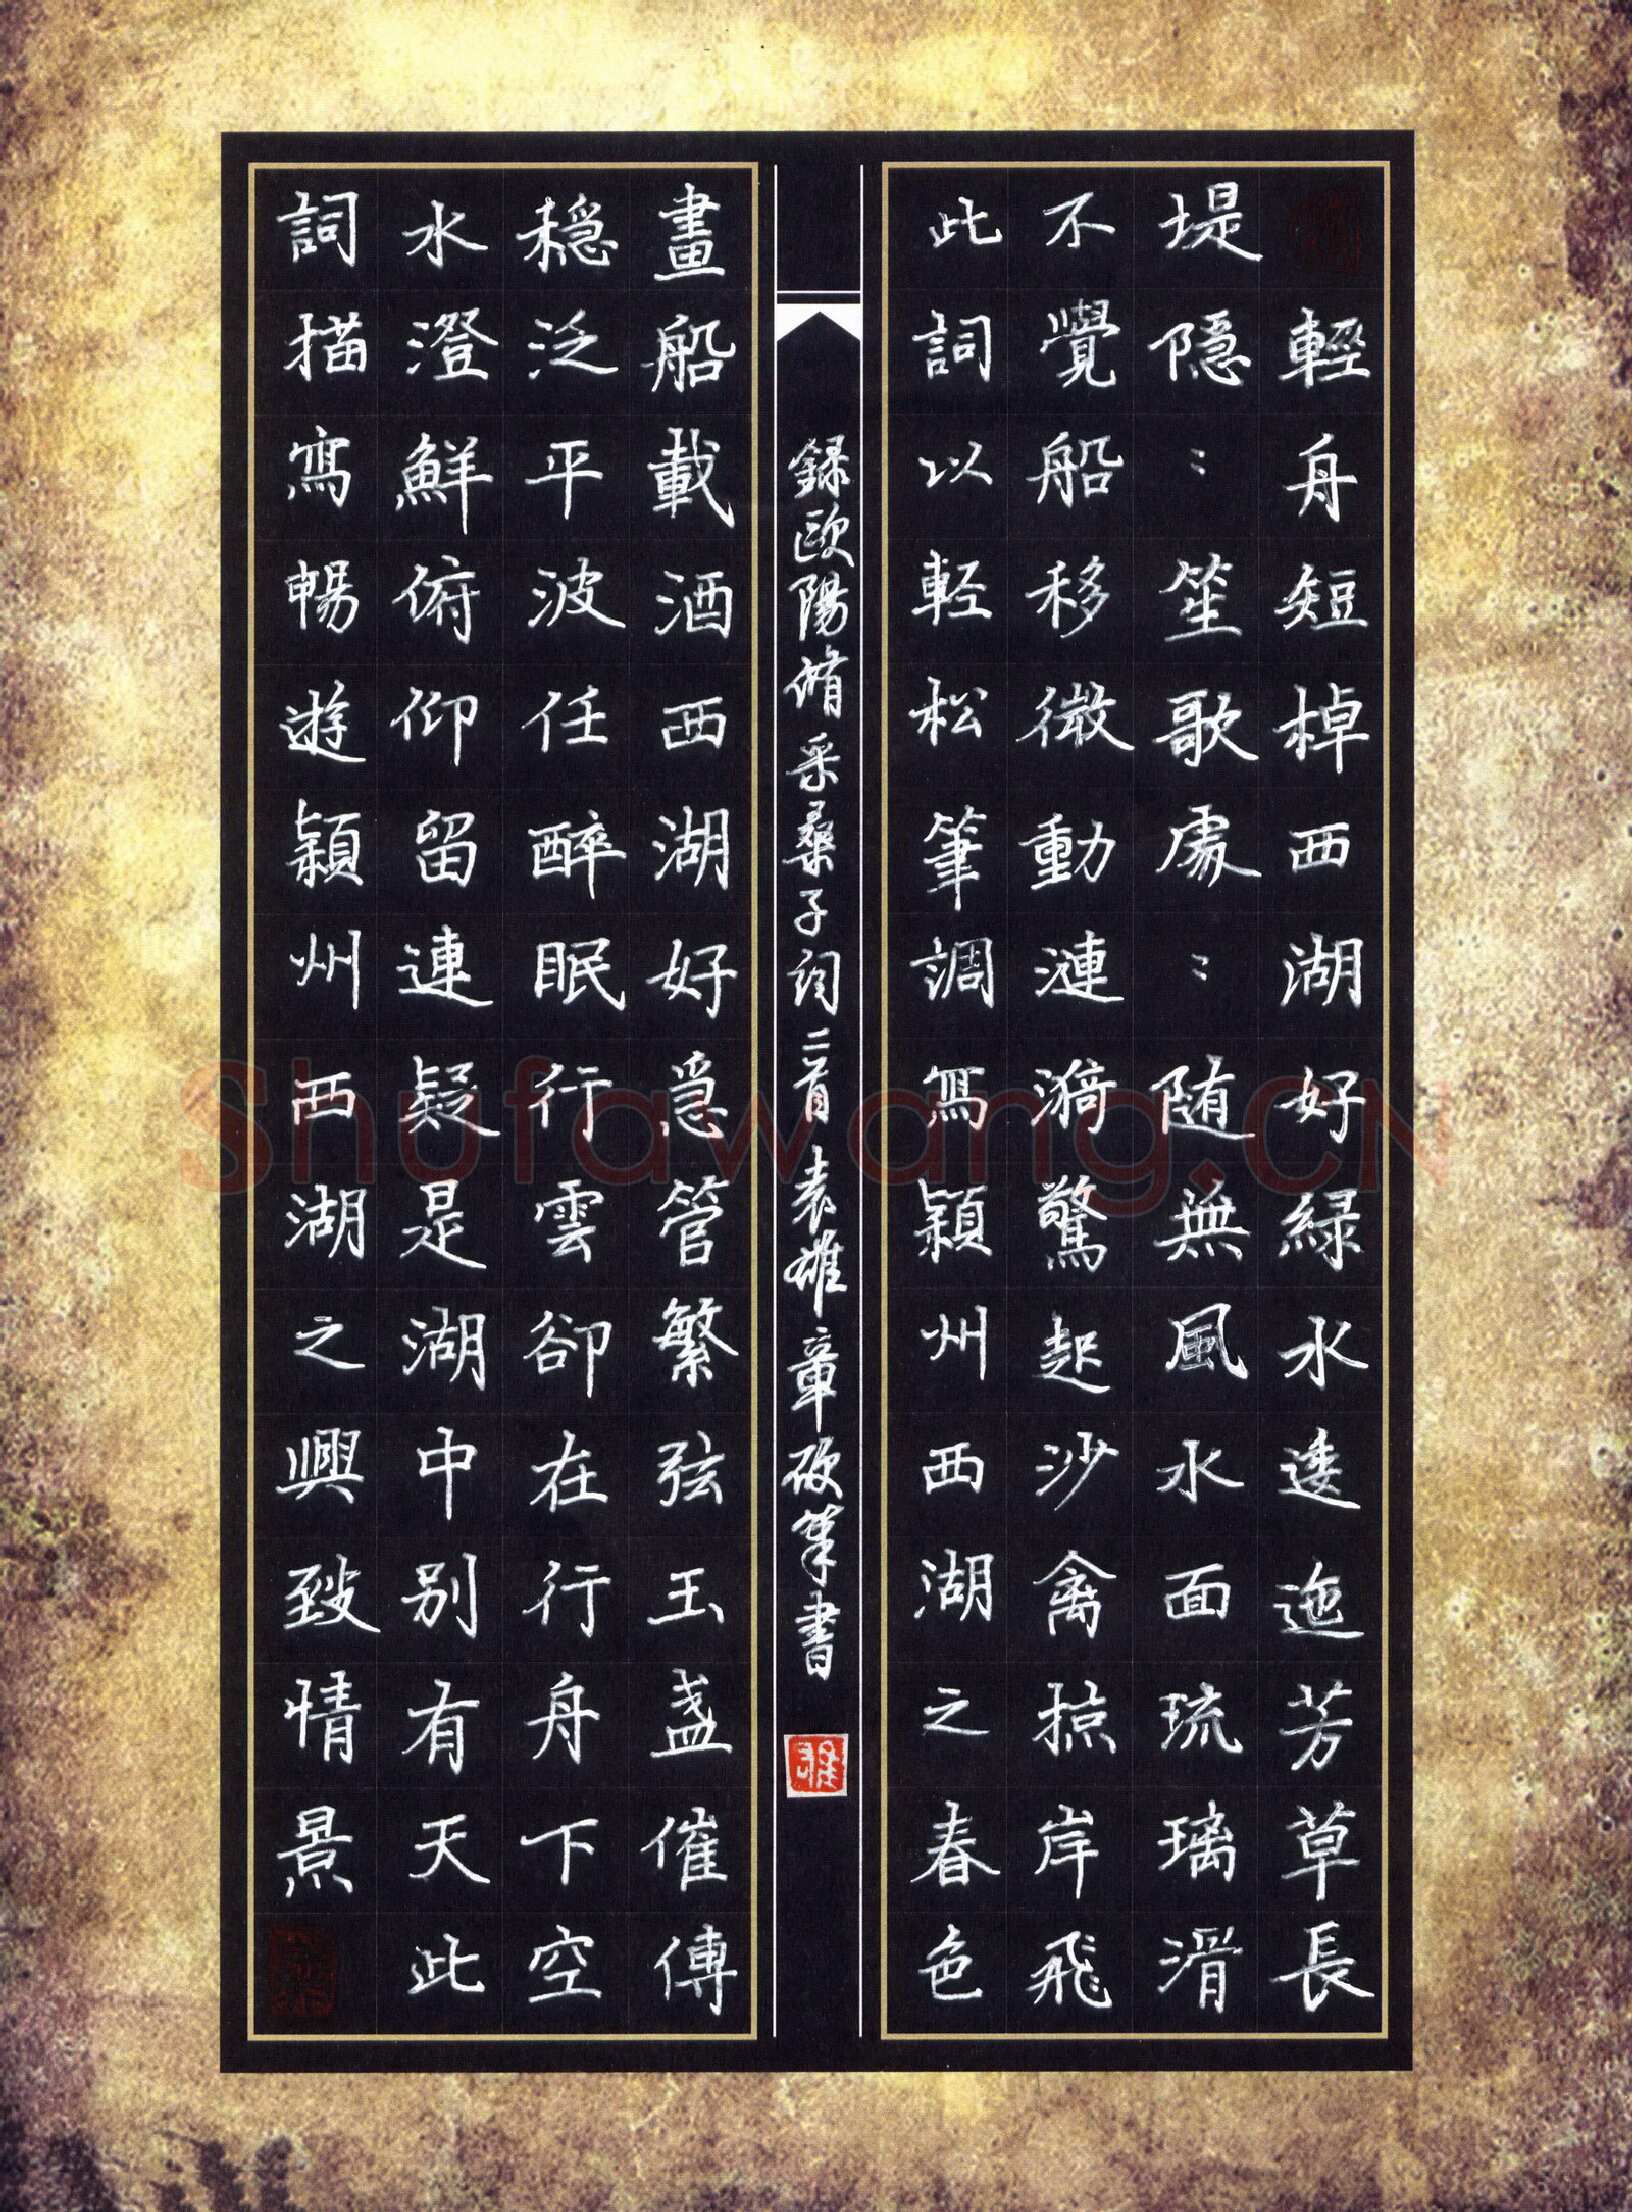 輕舟短棹西湖好綠水逶迤芳草長
堤隱:笙歌處:随無風水面琉璃滑
不覺船移微動漣漪驚起沙禽掠岸飛
此詞以輕松筆調寫穎州西湖之春色
録歐陽脩采桑子詞二首袁雄章硬筆書
畫船載酒西湖好急管繁弦玉盞催傳
穏泛平波任醉眠行雲卻在行舟下空
水澄鮮俯仰留連疑是湖中别有天此
詞描寫暢遊穎州西湖之興致情景
Shufawang.CN